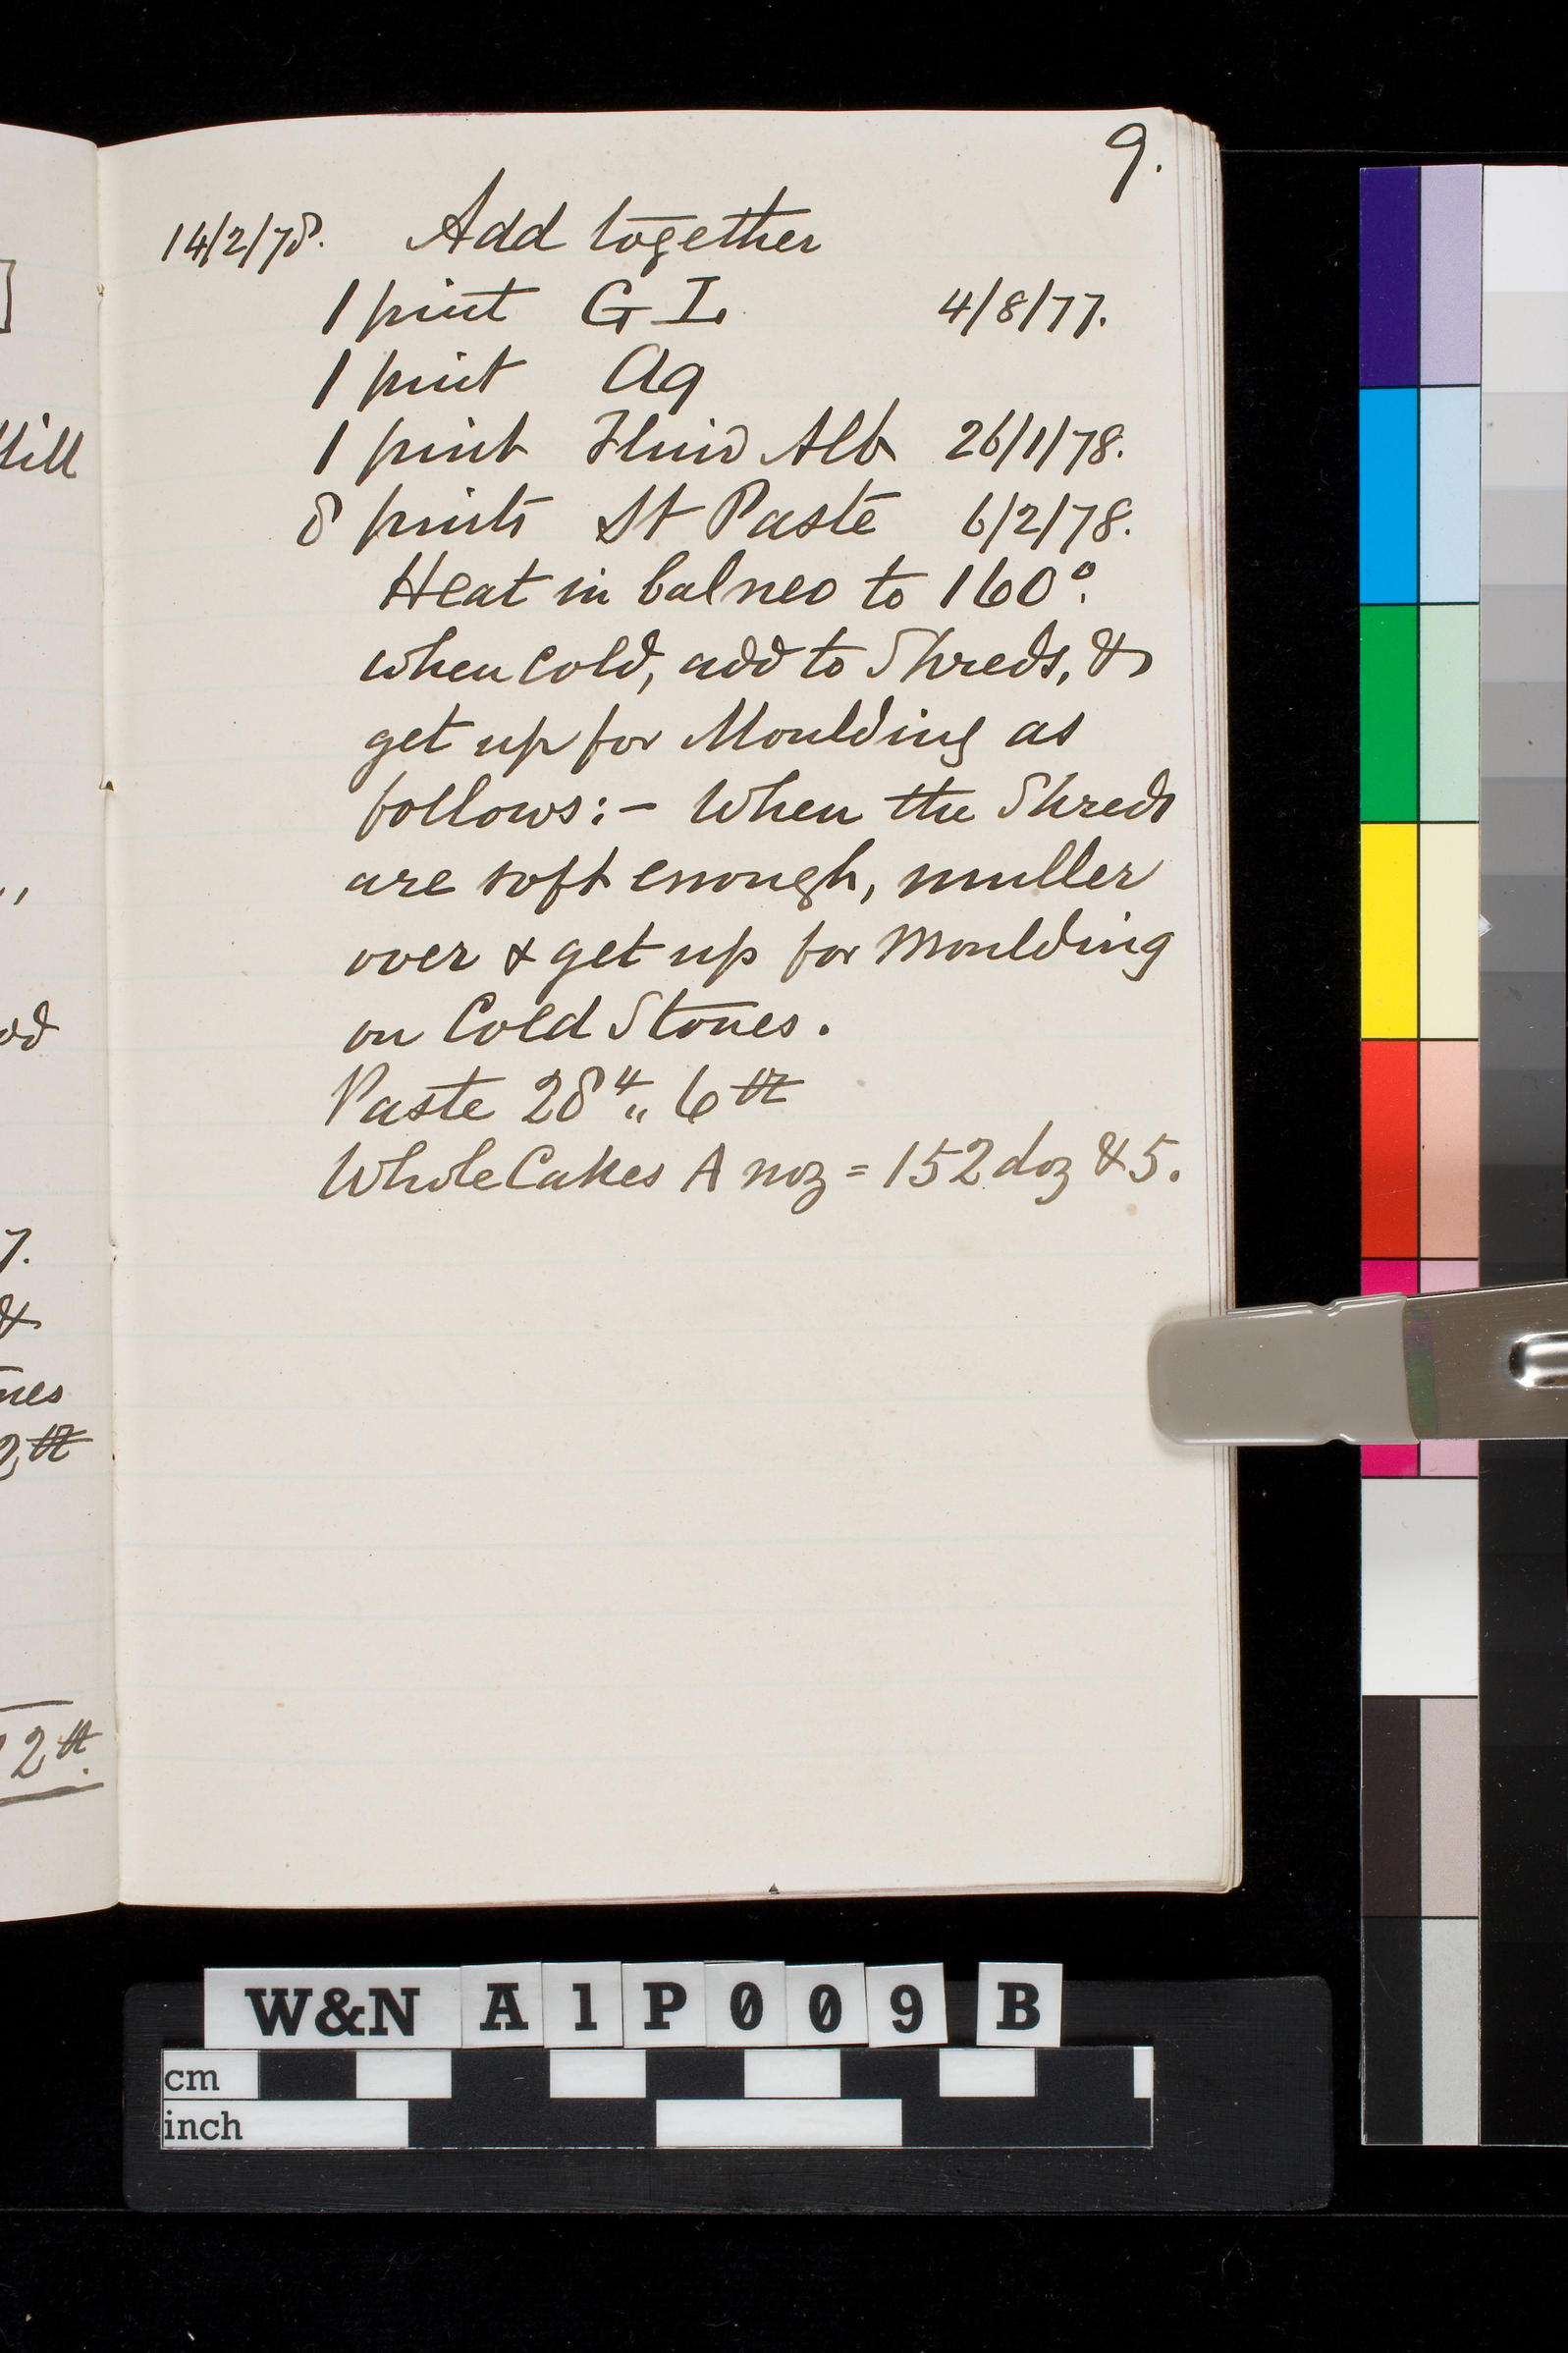 9.
14/2/78. Add together
1 pint G I. 4/8/77.
1 pint Aq
1 pint Fluid Alb 26/1/78.
8 pints St Paste 6/2/78.
Heat in balneo to 160°.
when cold, add to Shreds, &
get up for Moulding as
follows:- When the Shreds
are soft enough, muller
over & get up for Moulding
on Cold Stones.
Paste 28 " 6 ℔
Whole Cakes A noz = 152 doz & 5.
7.
&
2 ℔
2 ℔.
W&N A1P009 B
cm
inch